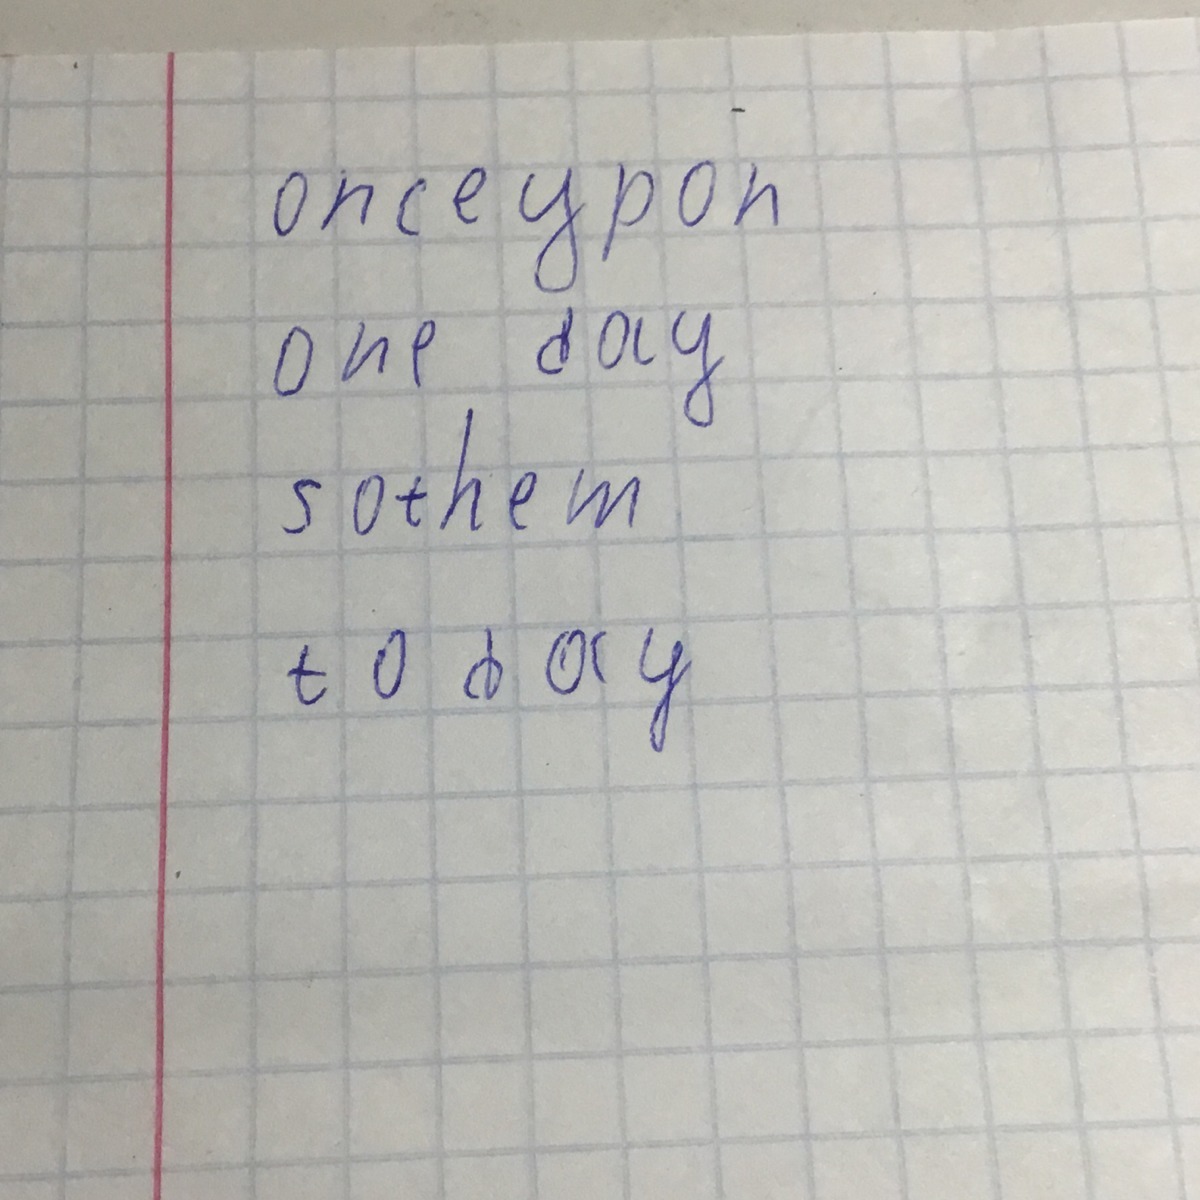 onceypon
one day
sothem
today